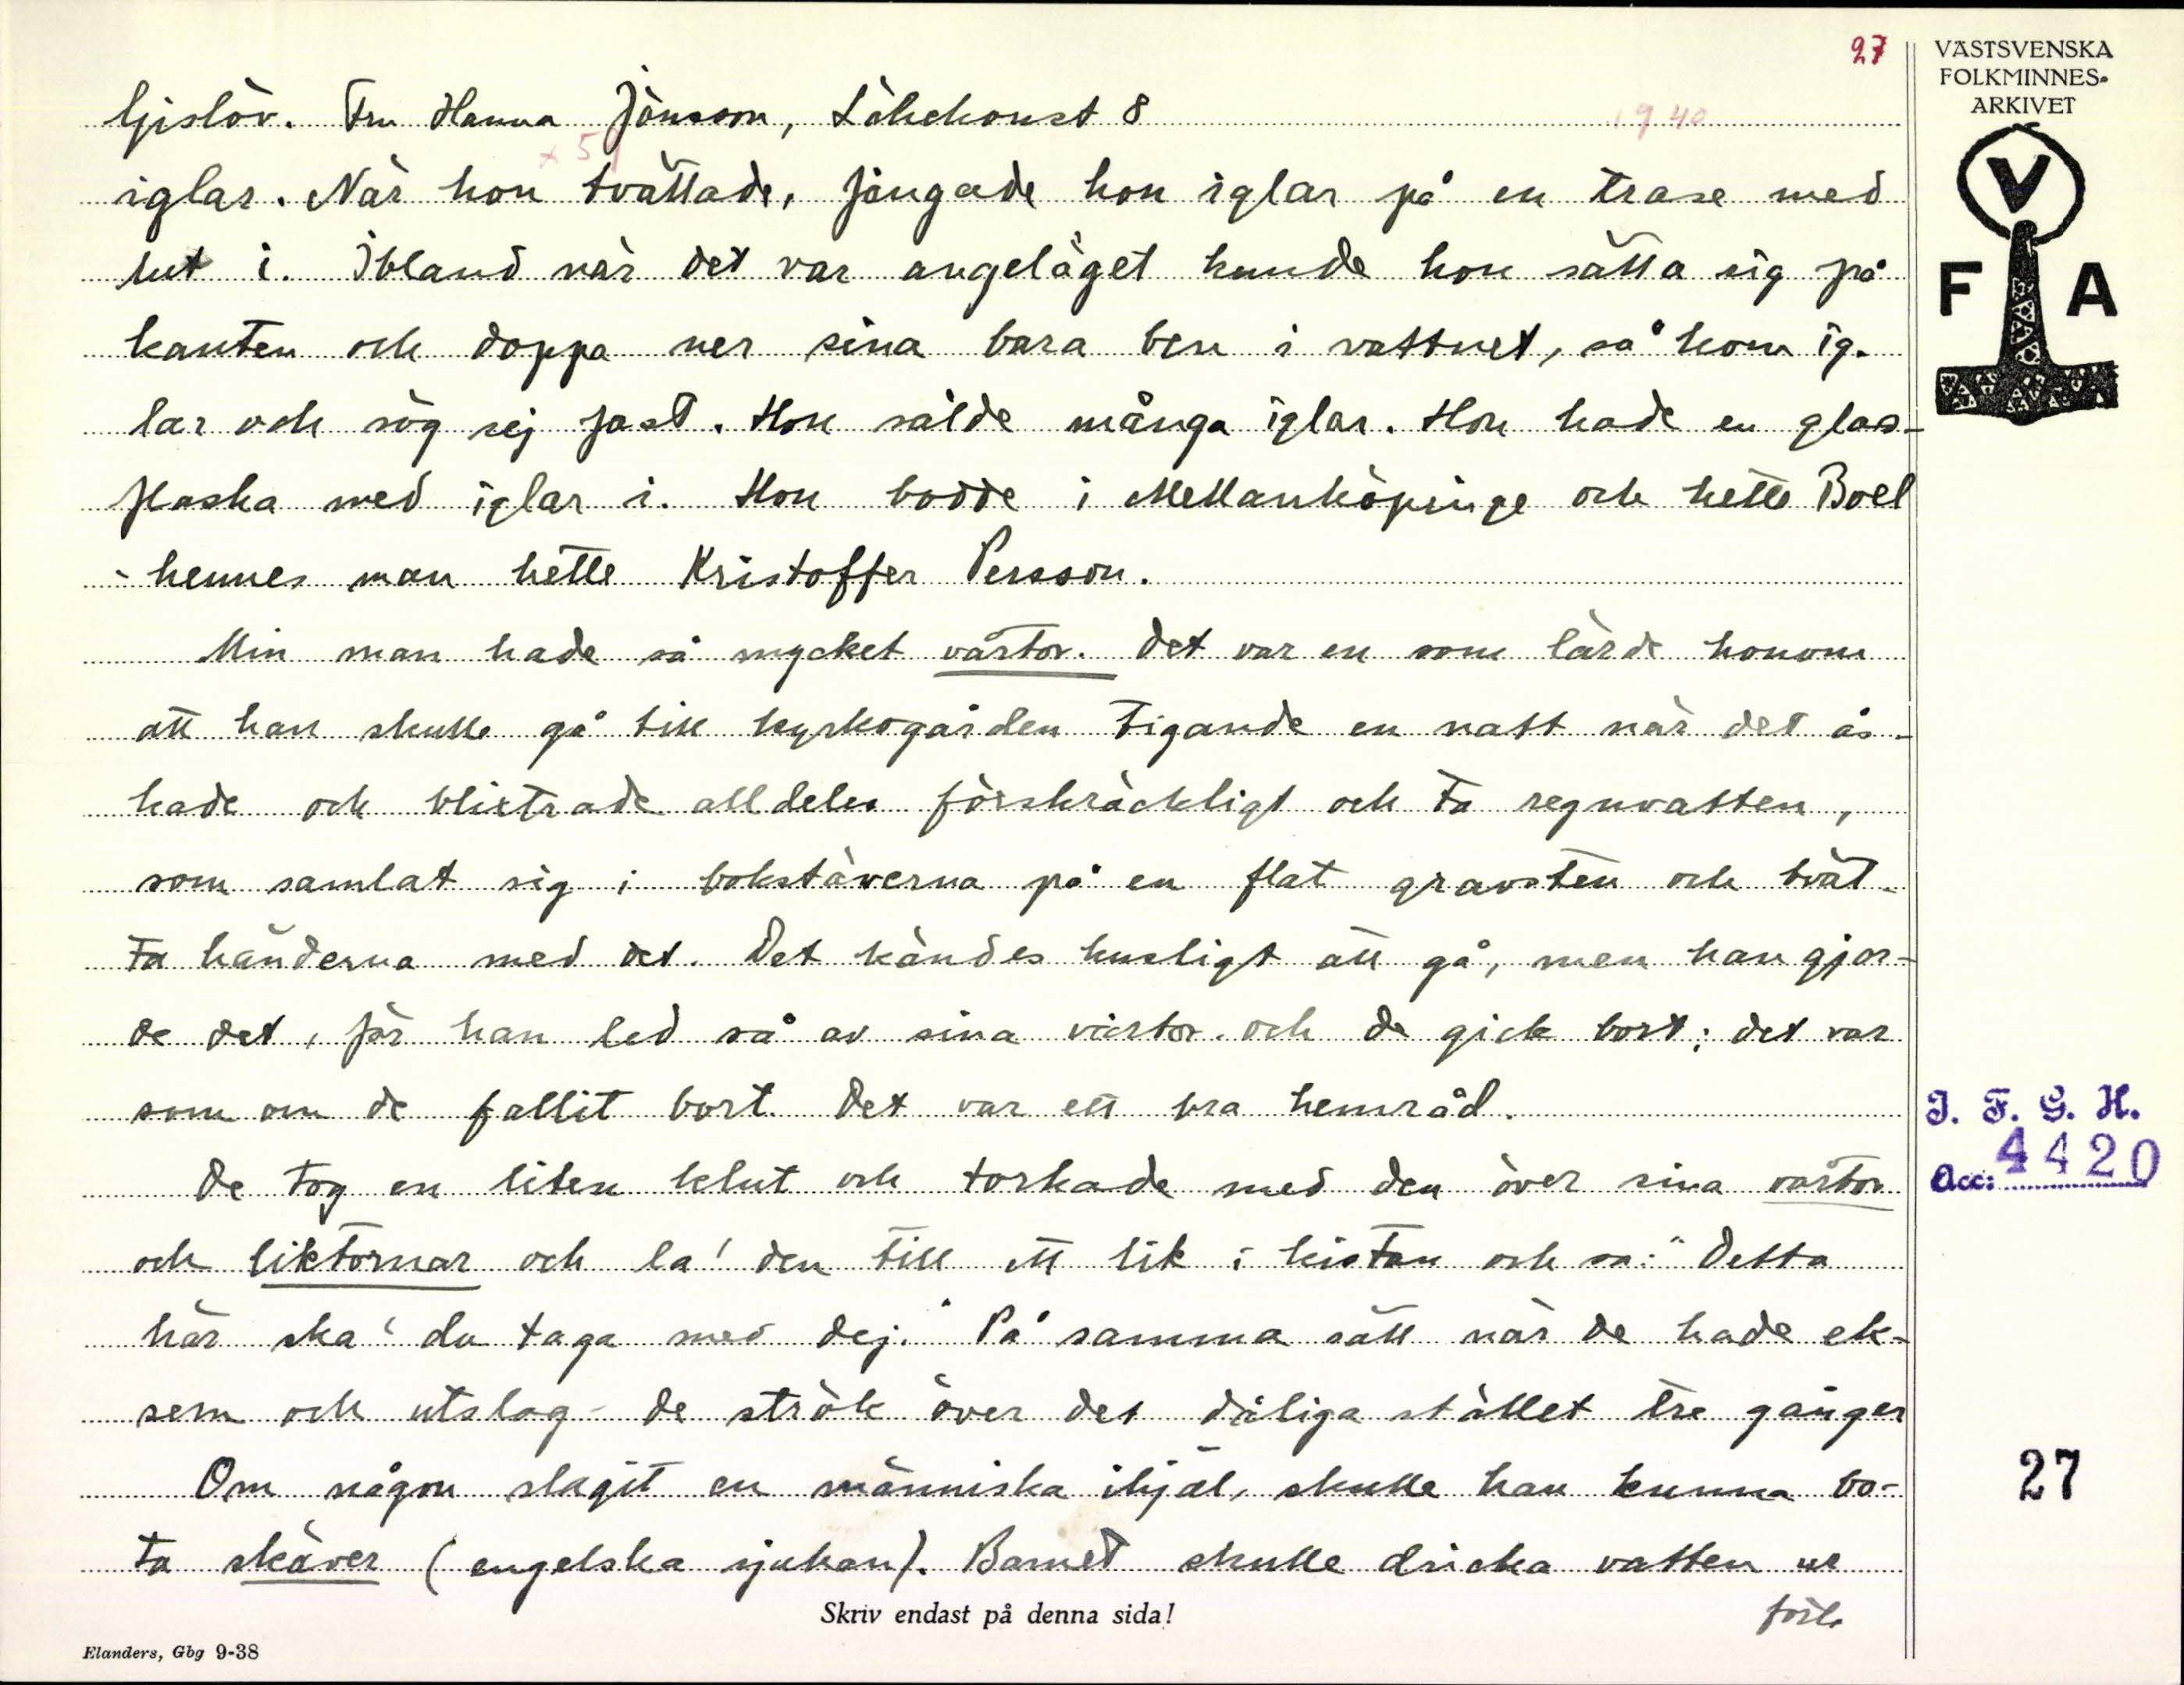 27
VÄSTSVENSKA
FOLKMINNES-
ARKIVET
V
F A
Gislöv. Fru Hanna Jönsson, Läkekonst 8
1940
x 51
iglar. När hon tvättade, fångade hon iglar på en trase med
lut i. Ibland när det var angeläget kunde hon sätta sig på
kanten och doppa ner sina bara ben i vattnet, så kom ig-
lar och sög sej fast. Hon sålde många iglar. Hon hade en glas-
flaska med iglar i. Hon bodde i Mellanköpinge och hette Boel
- hennes man hette Kristoffer Persson.
Min man hade så mycket vårtor. Det var en som lärde honom
att han skulle gå till kyrkogården tigande en natt när det ås-
kade och blixtrade alldeles förskräckligt och ta regnvatten,
som samlat sig i bokstäverna på en flat gravsten och tvät-
ta händerna med det. Det kändes kusligt att gå, men han gjor-
de det, för han led så av sina vårtor. och de gick bort; det var
som om de fallit bort. Det var ett bra hemråd.
De tog en liten klut och torkade med den över sina vårtor
och liktornar och la' den till ett lik i kistan och sa: "Detta
här ska' du taga med dej." På samma sätt när de hade ek-
sem och utslag - de strök över det dåliga stället tre gånger
Om någon slagit en människa ihjäl, skulle han kunna bo-
ta skäver (engelska sjukan). Barnet skulle dricka vatten ur
forts
Skriv endast på denna sida!
Elanders, Gbg 9-38
I. F. G. H.
Acc: 4420
27